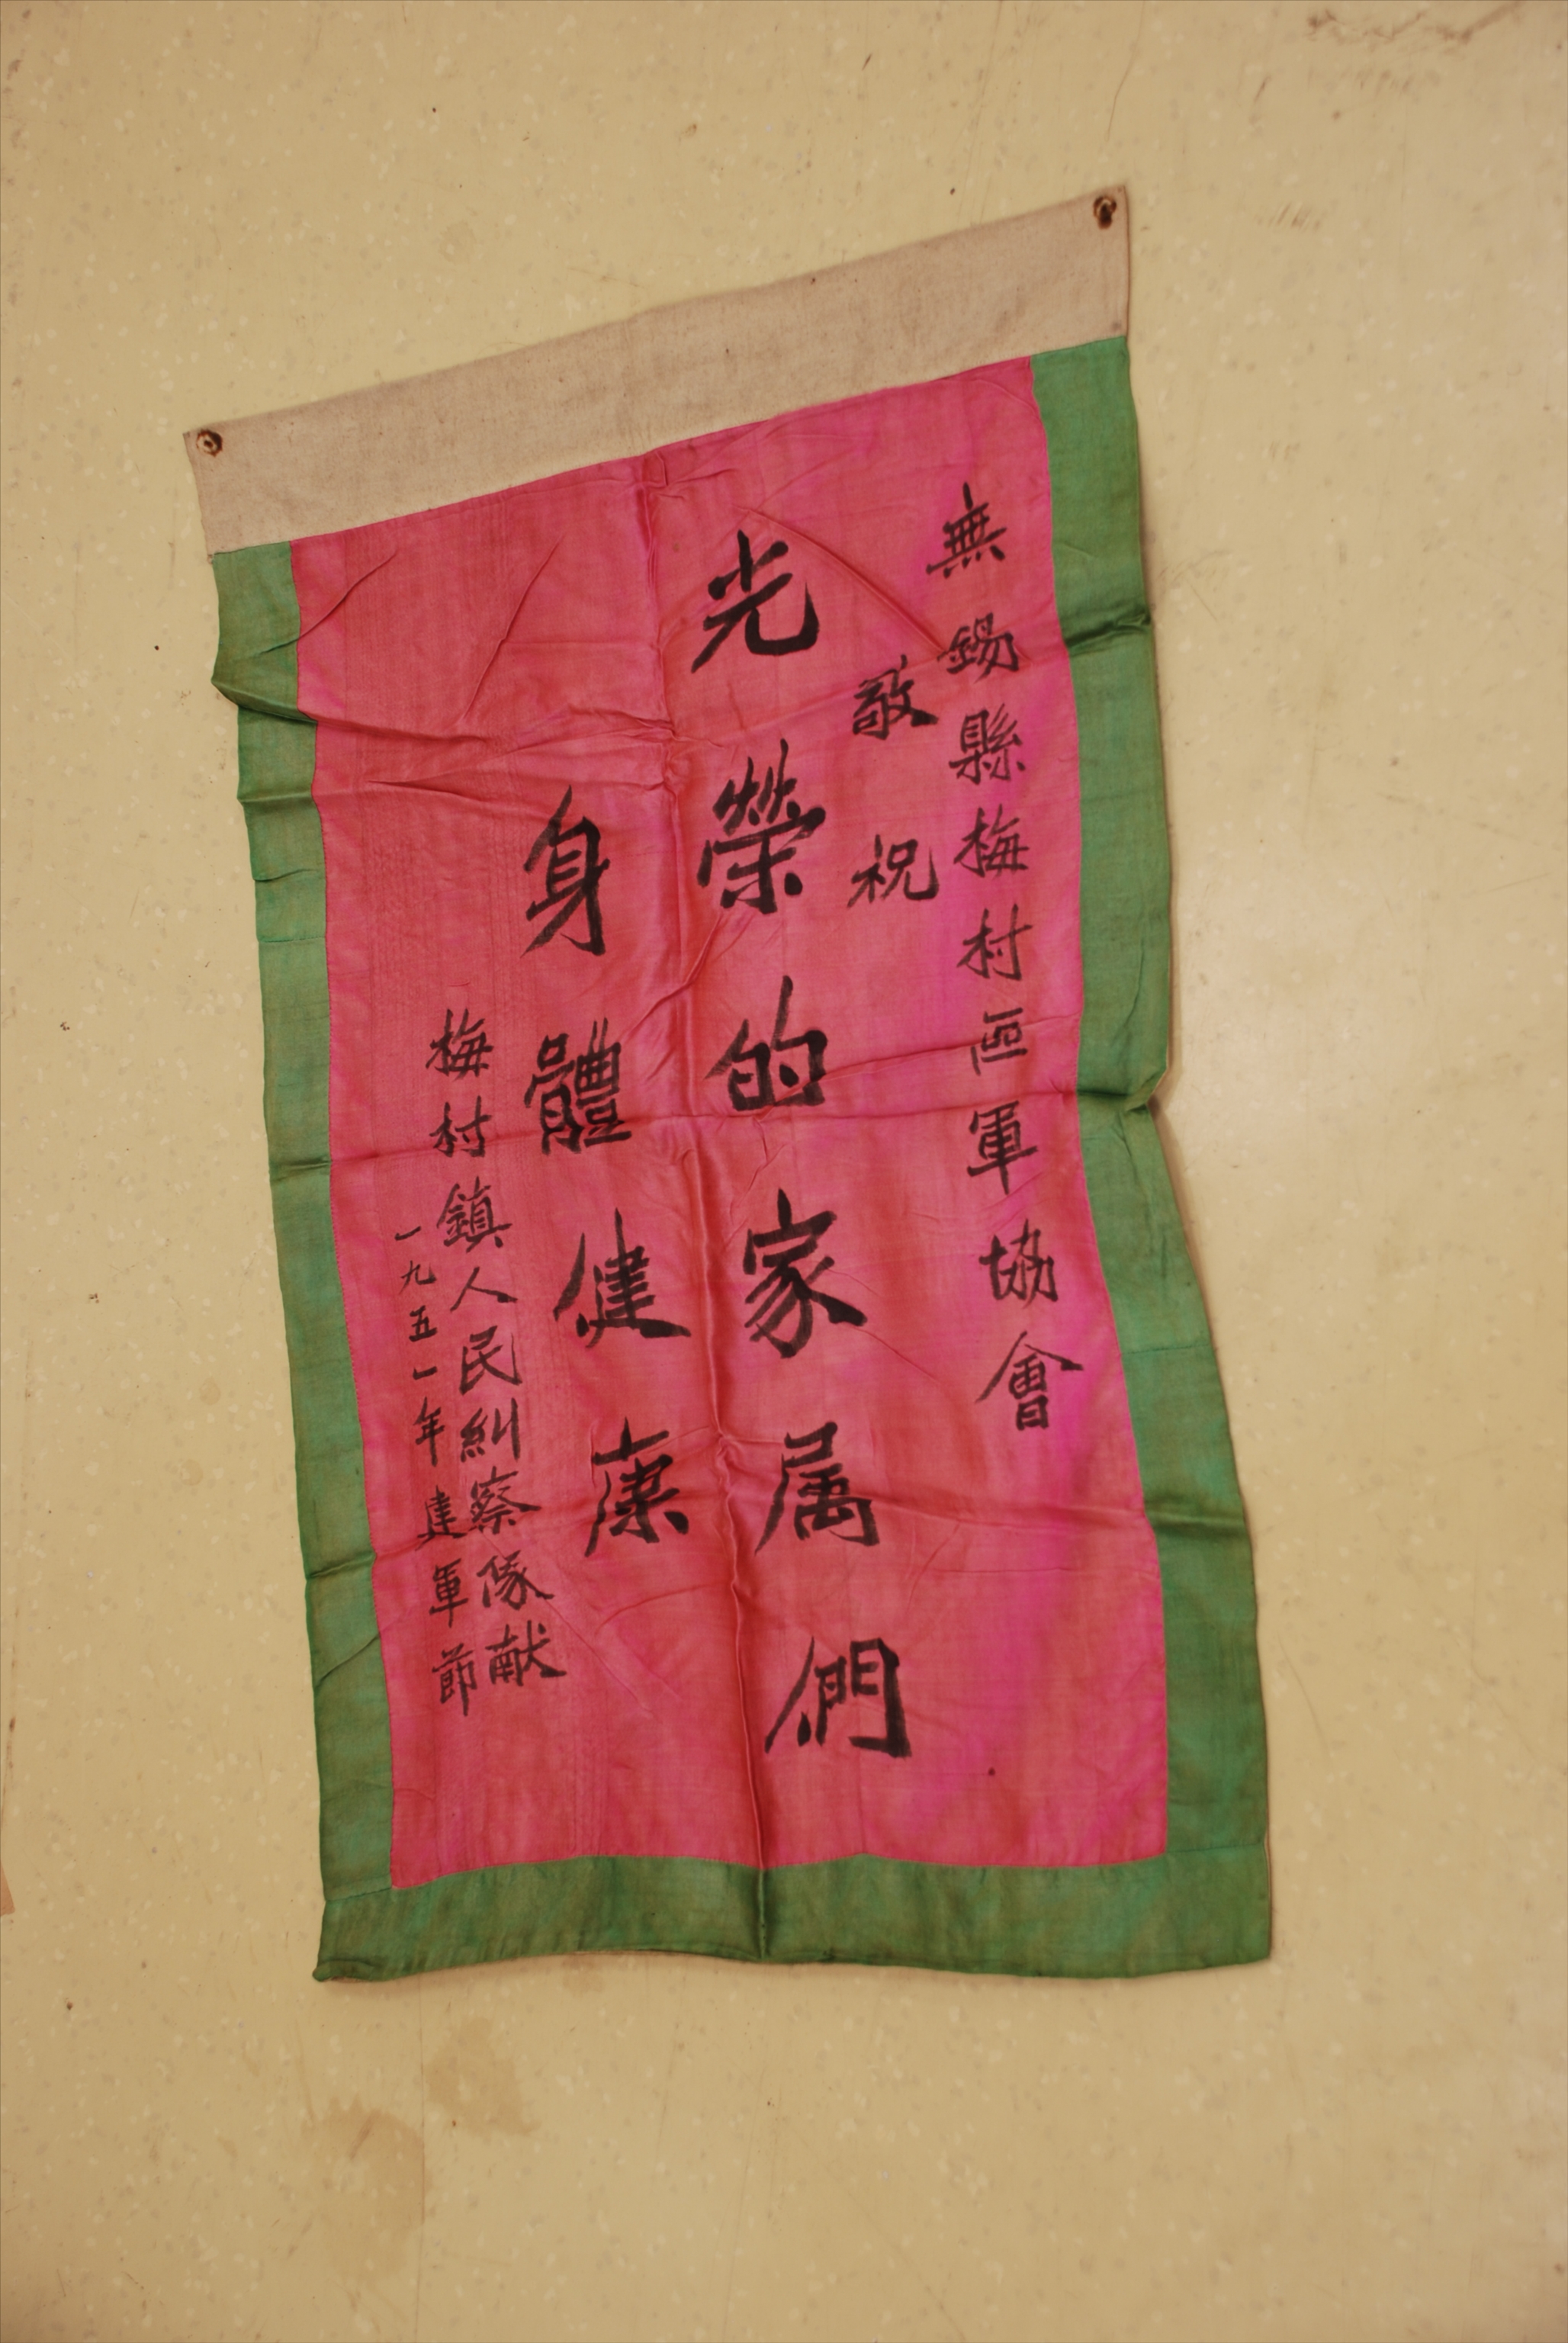 無錫縣梅村區軍協會
敬祝
光榮的家属們
身體健康
梅村鎮人民糾察隊献
一九五一年建軍節